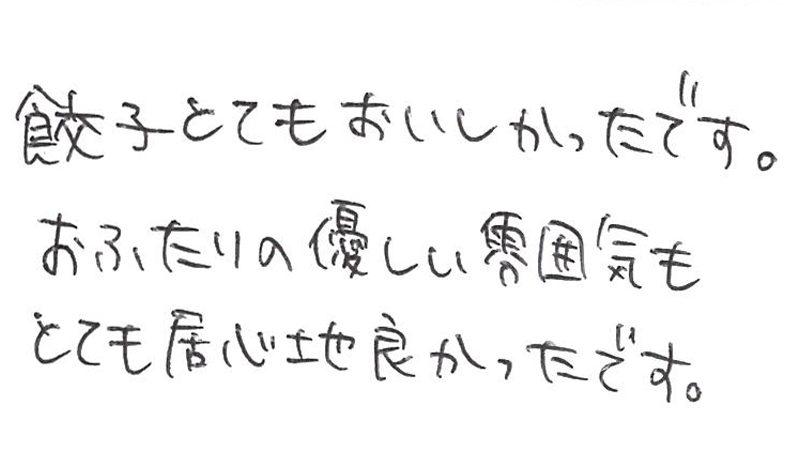 餃子とてもおいしかったです。
おふたりの優しい雰囲気も
とても居心地良かったです。